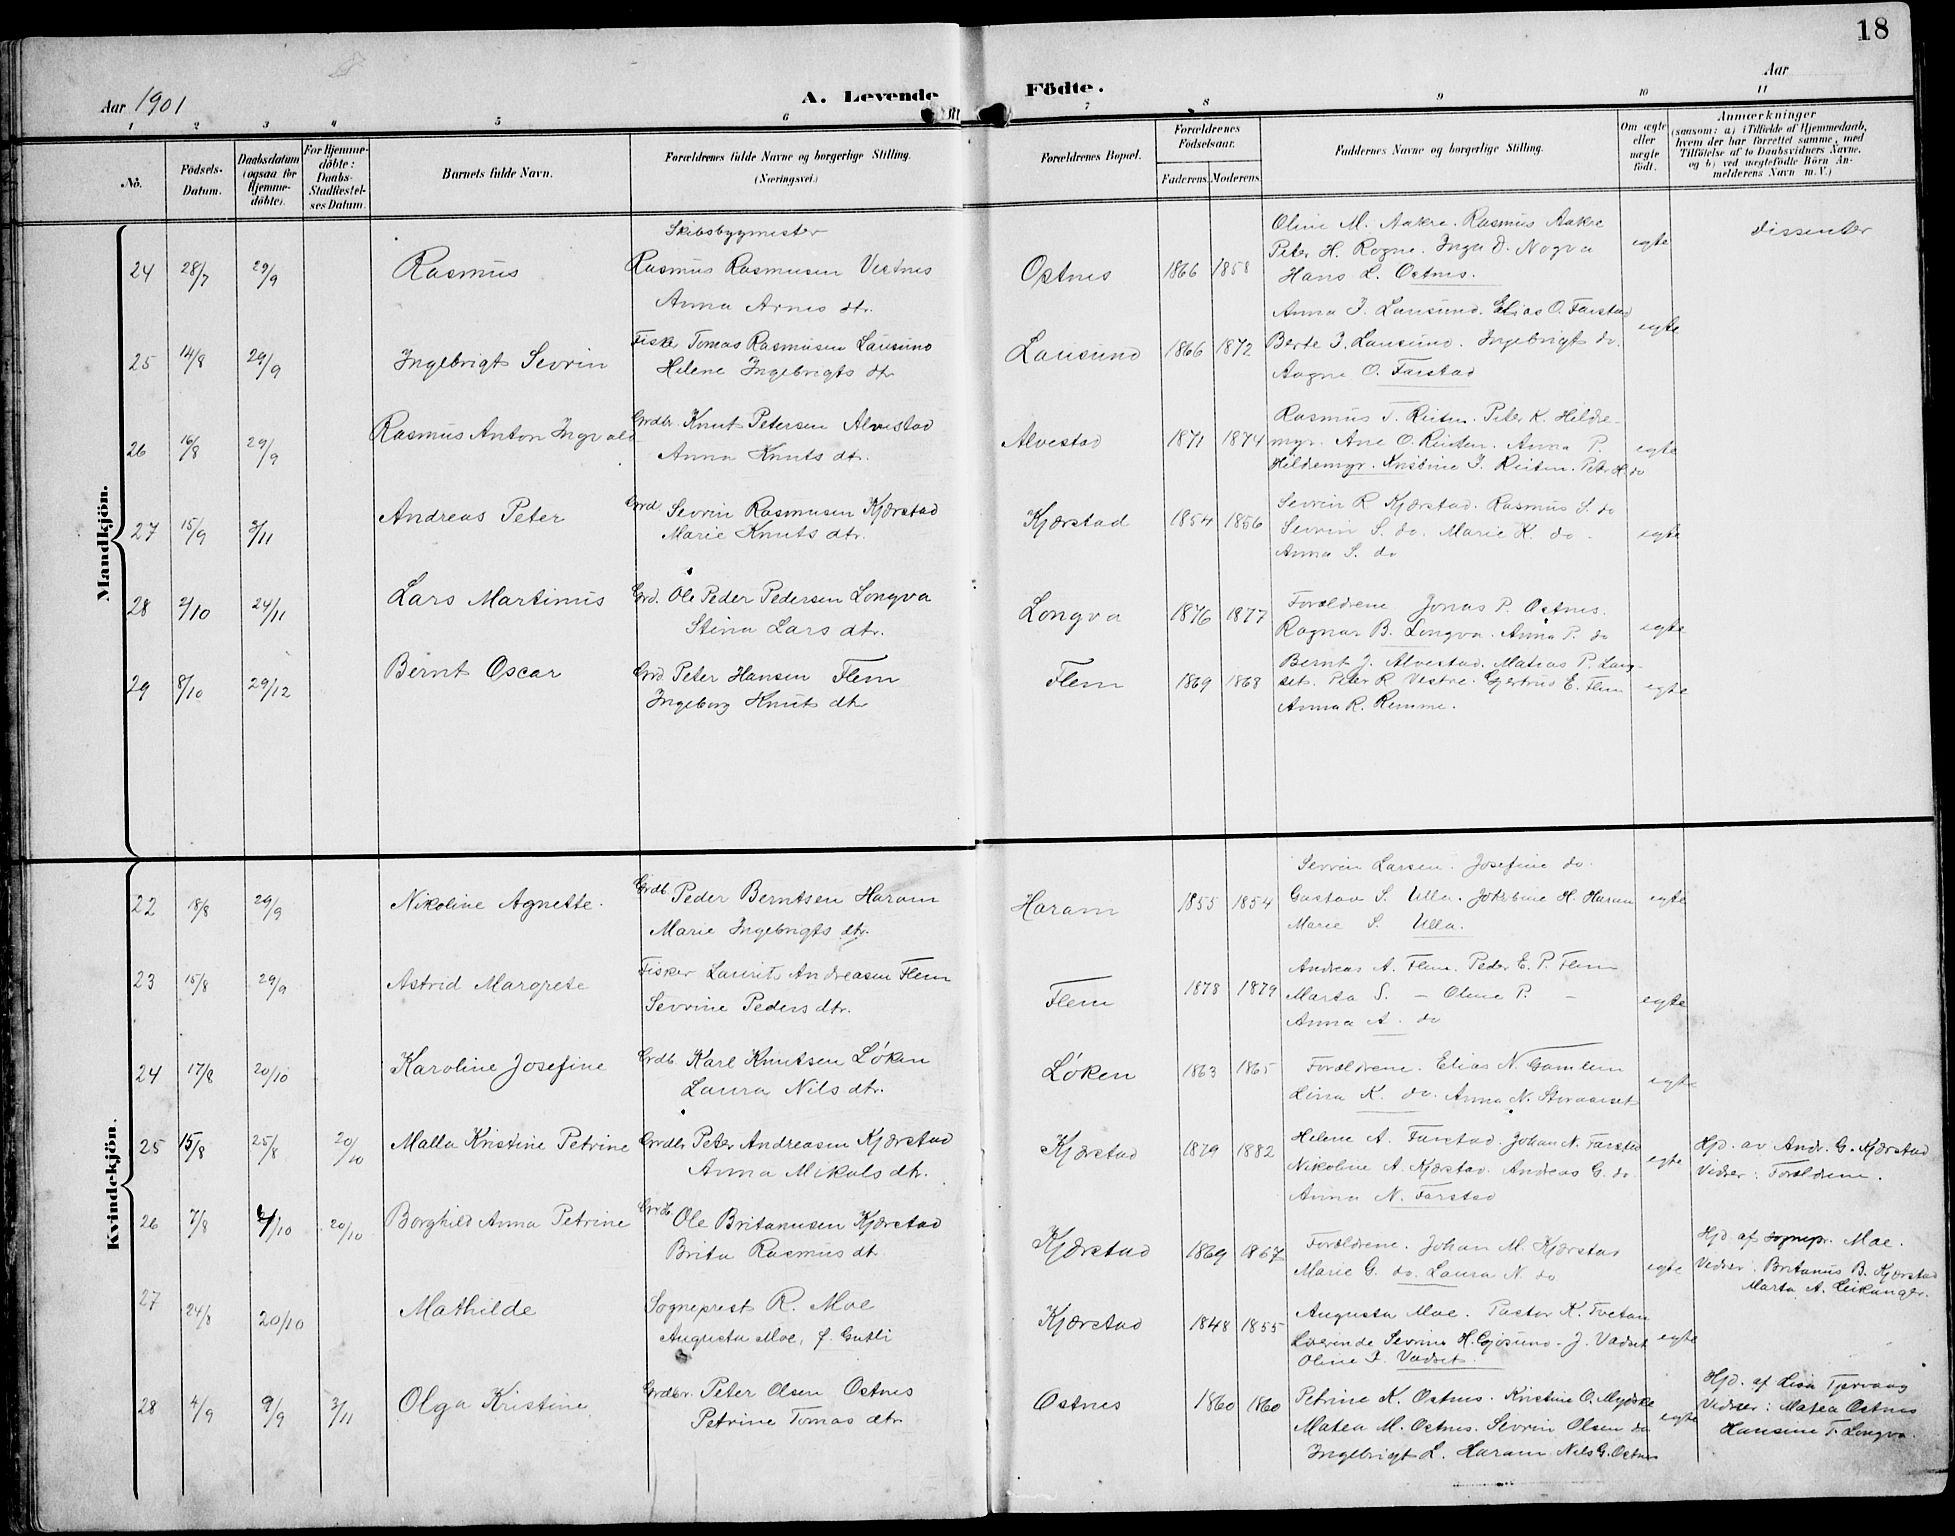 18
Aar 1901
A. Levende Födte.
Aar
1 2 3 4 5 6 7 8 9 10 11
No.
Födsels-Datum.
Daabsdatum (ogsaa for Hjemme-döbte).
For Hjemme-döbte: Daabs-Stadfæstel-ses Datum.
Barnets fulde Navn.
Forældrenes fulde Navne og borgerlige Stilling.
(Næringsvei.)
Forældrenes Bopæl.
Forældrenes Födselsaar.
Faderens. Moderens.
Faddernes Navne og borgerlig Stilling.
Om ægte eller uægte födt.
Anmærkninger
(saasom: a) i Tilfælde af Hjemmedaab,
hvem der har forrettet samme, med
Tilföielse af to Daabsvidners Navne,
og b) ved uægtefödte Börn An-
melderens Navn m. V.)
Mandkjön.
24 28/7 29/9 Rasmus
Skibsbygmester
Rasmus Rasmusen Vestnes
Anna Arnes dtr.
Ostnes 1866 1858
Oline M. Aakre. Rasmus Aakre
Peter H. Rogne. Inga O. Nogva
Hans L. Ostnes.
egte
dissenter
25 14/8 29/9 Ingebrigt Sevrin
Fisker Tomas Rasmusen Lausund
Helene Ingebrigts dtr
Lausund 1866 1872
Anna I. Lausund. Elias O. Farstad
Berte I. Lausund. Ingebrigt do.
Aagne O. Farstad
egte
26 16/8 29/9 Rasmus Anton Ingvald
Grdbr. Knut Petersen Alvestad
Anna Knuts dtr.
Alvestad 1871 1874
Rasmus T. Reiten. Peter K. Hildre-
myr. Ane O. Reiten. Anna P.
Hildremyr. Kristine I. Reiten. Peter H. do
egte
27 15/9 3/11 Andreas Peter
Grd. Sevrin Rasmusen Kjærstad
Marie Knuts dtr.
Kjærstad 1854 1856
Sevrin R Kjærstad. Rasmus S. do
Sevrin S. do. Marie K. do.
Anna S. do
egte
28 2/10 24/11 Lars Martinus
Grd. Ole Peder Pedersen Longva
Stina Lars dtr.
Longva 1876 1877
Forældrene Jonas P. Ostnes.
Ragnar B. Longva. Anna P. do
egte
29 8/10 29/12 Bernt Oscar
Grd Peter Hansen Flem
Ingeborg Knuts dtr
Flem 1869 1868
Bernt J. Alvestad. Matias P. Lang-
set. Peter R Vestre. Gjertrud E. Flem
Anna R. Remme.
egte
Kvindekjön.
22 18/8 29/9 Nikoline Agnette.
Grdb. Peder Berntsen Haram
Marie Ingebrigts dtr.
Haram 1855 1854
Sevrin Larsen. Josefine do.
Gustav S. Ulla. Jokobine H. Haram
Marie S. Ulla.
egte
23 15/8 29/9 Astrid Margrete
Fisker Laurits Andreasen Flem
Sevrine Peders dtr.
Flem 1878 1879
Andreas A. Flem. Peder E. P. Flem
Marta S. — Oline P. —
Anna A. do
egte
24 17/8 20/10 Karoline Josefine
Grdb. Karl Knutsen Løken
Laura Nils dtr.
Løken 1863 1865
Forældrene. Elias N. Gamlem
Lina K. do. Anna N. Storaaset
egte
25 15/8 25/8 20/10 Malla Kristine Petrine
Grdbr. Peter Andreasen Kjærstad
Anna Mikals dtr.
Kjærstad 1879 1882
Helene A. Farstad. Johan N. Farstad
Nikoline A. Kjærstad. Andreas G. do.
Anna N. Farstad
egte
Hjd. av Andr. G. Kjærstad
Vidner: Forældrene.
26 7/8 /10 20/10 Borghild Anna Petrine
Grdb. Ole Britanusen Kjærstad
Brita Rasmus dt
Kjærstad 1869 1867
Forældrene. Johan M. Kjærstad
Marie G. do. Laura N. do
egte
Hjd af sognepr. Moe.
Vidner: Britanus B. Kjærstad
Marta A. Leikanger.
27 24/8 20/10 Mathilde
Sogneprest R. Moe
Augusta Moe, f. Gutli
Kjærstad 1848 1855
Augusta Moe. Pastor K. Tvetan
Lærinde Sevrine H. Gjøsund. J. Vadset
Oline I. Vadset.
egte
28 4/9 9/9 3/11 Olga Kristine
Grdbr. Peter Olsen Ostnes
Petrine Tomas dtr
Ostnes 1860 1860
Petrine K. Ostnes. Kristine O. Myrske
Matea M. Ostnes. Sevrin Olsen do
Ingebrigt L. Haram. Nils G. Ostnes
egte
Hjd. af Tjervaag
Vidner: Matea Ostnes
Hansine T. Longva.